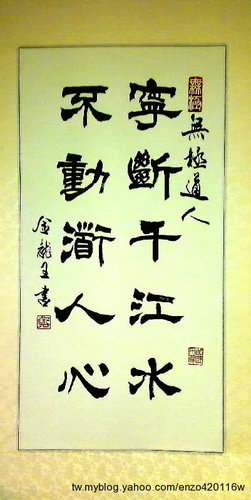 無極道人
寧斷千江水
不動衜人心
金龍王書
tw.myblog.yahoo.com/enzo420116w